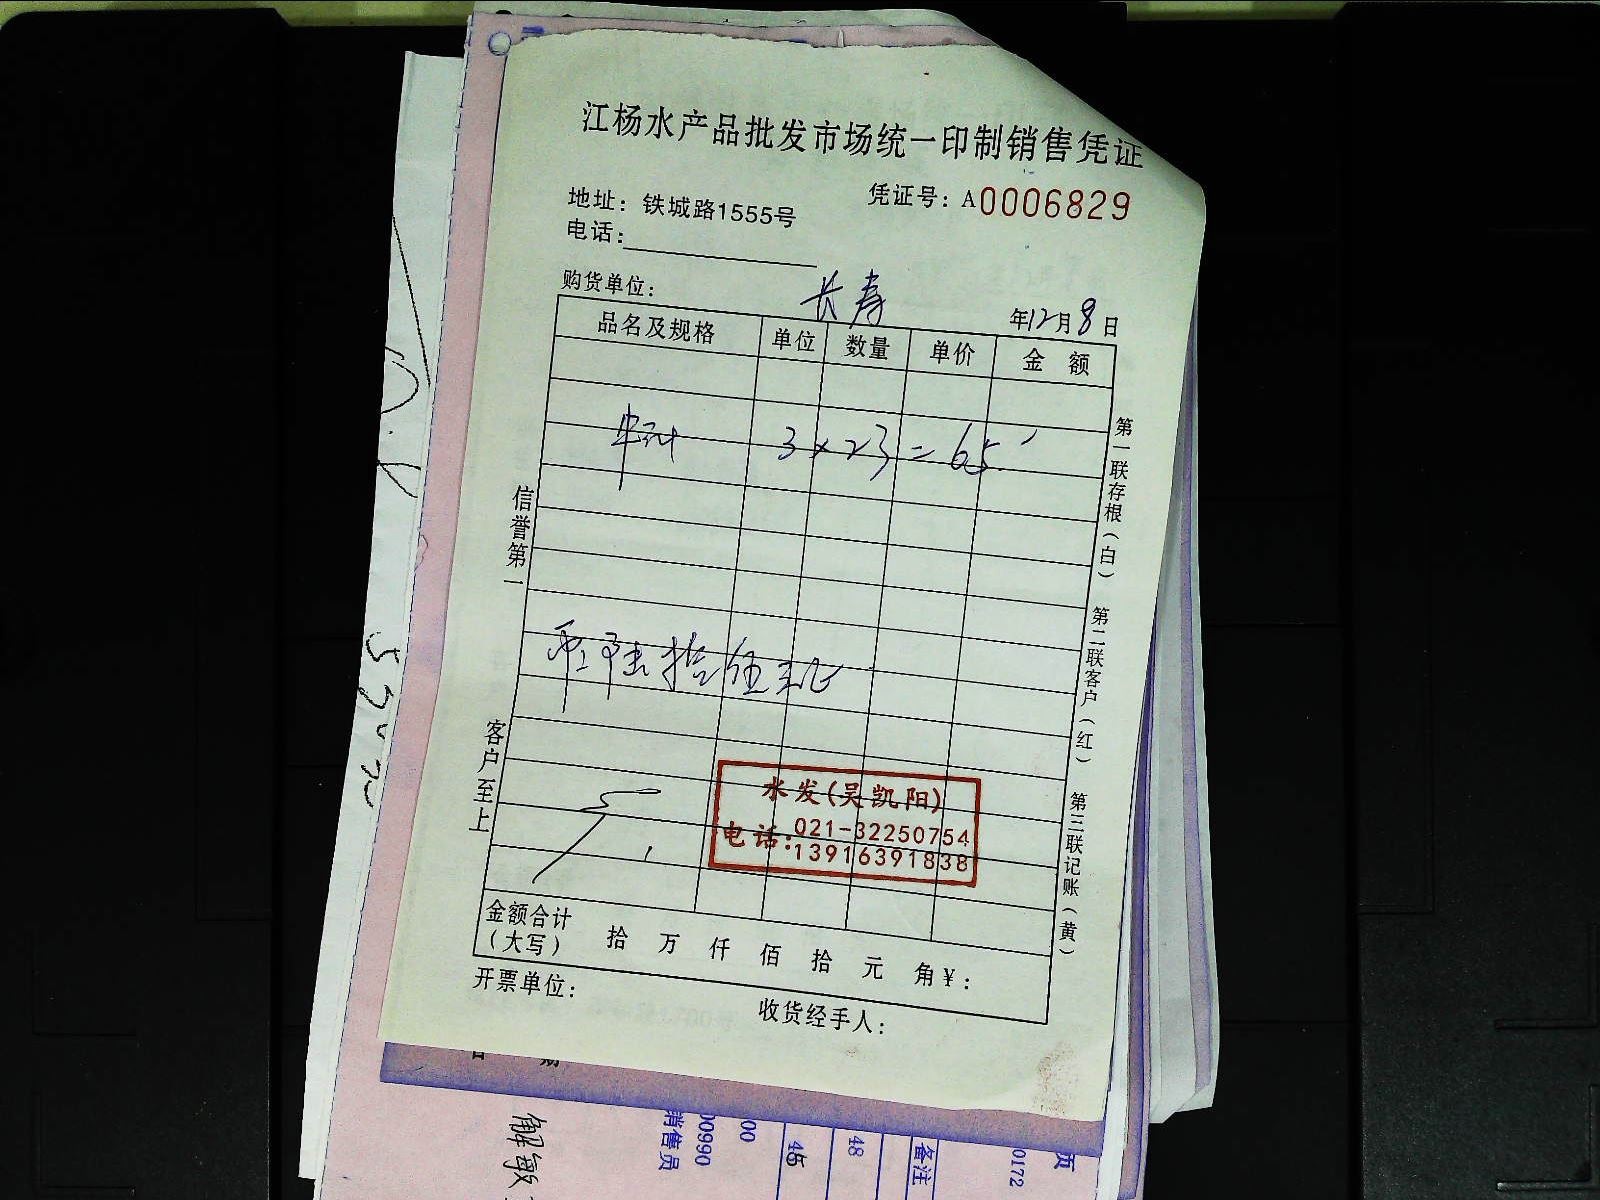 江杨水产品批发市场统一印制销售凭证
凭证号：A0006829
地址：铁城路1555号
电话：
购货单位： 长寿 年12月8日
品名及规格 单位 数量 单价 金额
3×23=65
陆拾伍元
水发(吴凯阳)
电话：021-32250754
13916391838
金额合计
（大写） 拾 万 仟 佰 拾 元 角 ¥：
开票单位：
收货经手人：
信誉第一
客户至上
第一联存根（白）
第二联客户（红）
第三联记账（黄）
00990
销售员
00
45
48
备注
0172
页